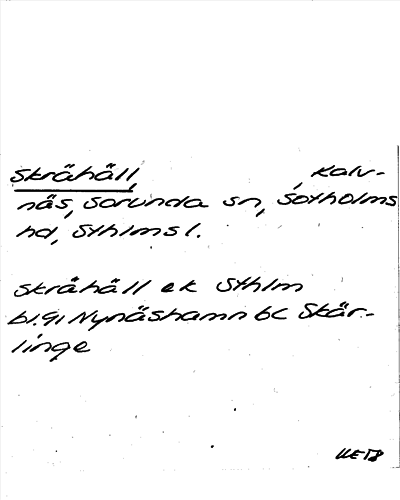 Skråhäll, Kalv-
näs, Sorunda sn, Sotholms
hd, Sthlms l.
Skråhäll ek Sthlm
bl. 91 Nynäshamn 6c Skär-
linge